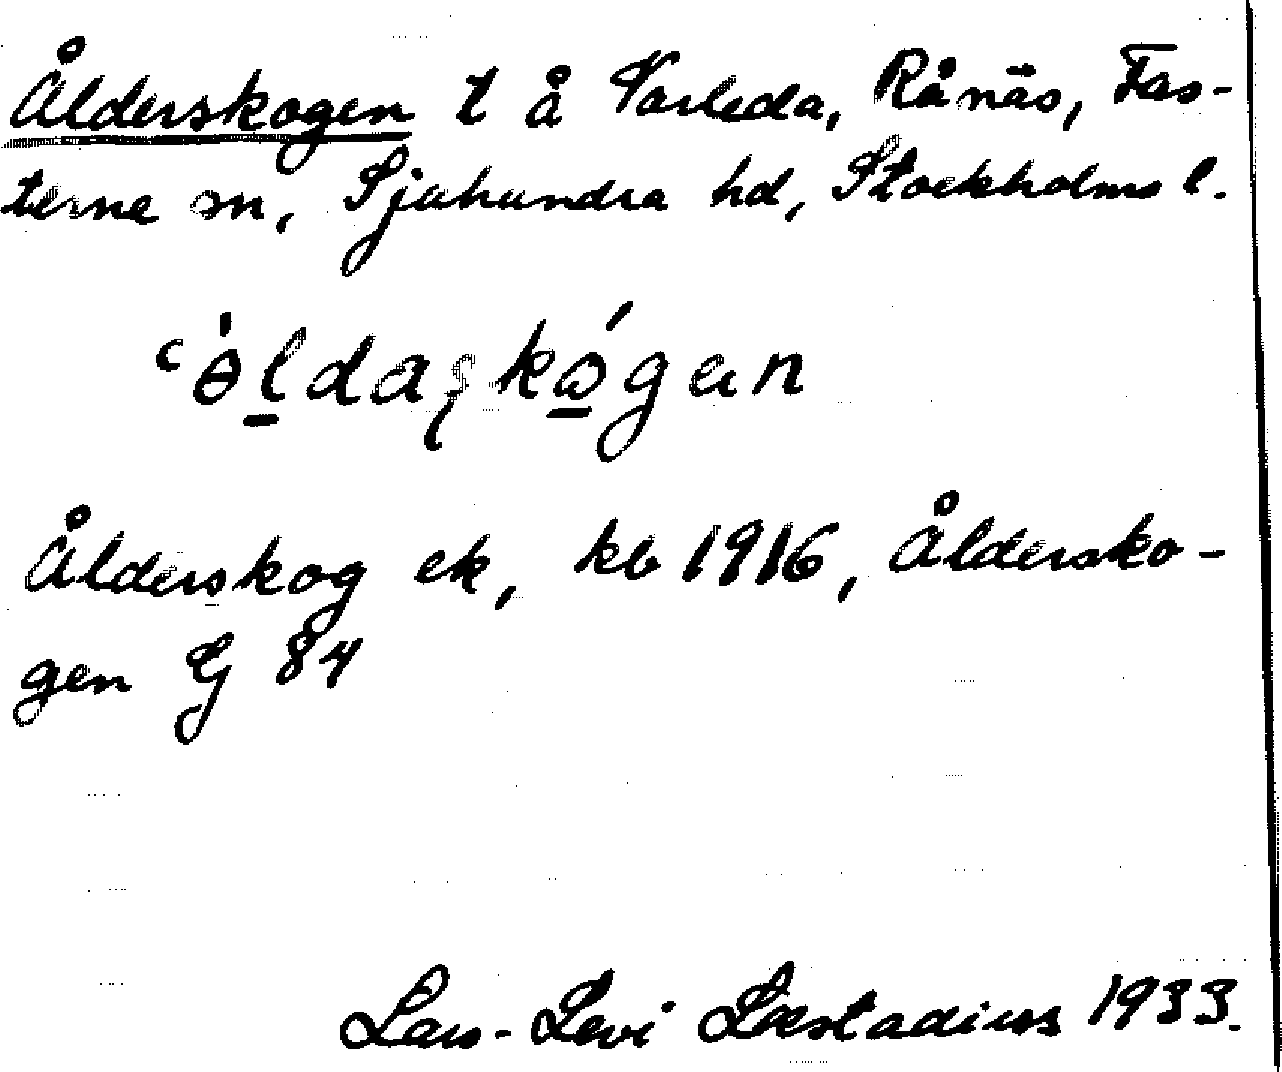 Ålderskogen t å Varleda, Rånäs, Fas-
terne sn, Sjuhundra hd, Stockholms l.
Ålderskog ek, kb 1916, Åldersko-
gen G 84
Lars-Levi Læstadius 1933.